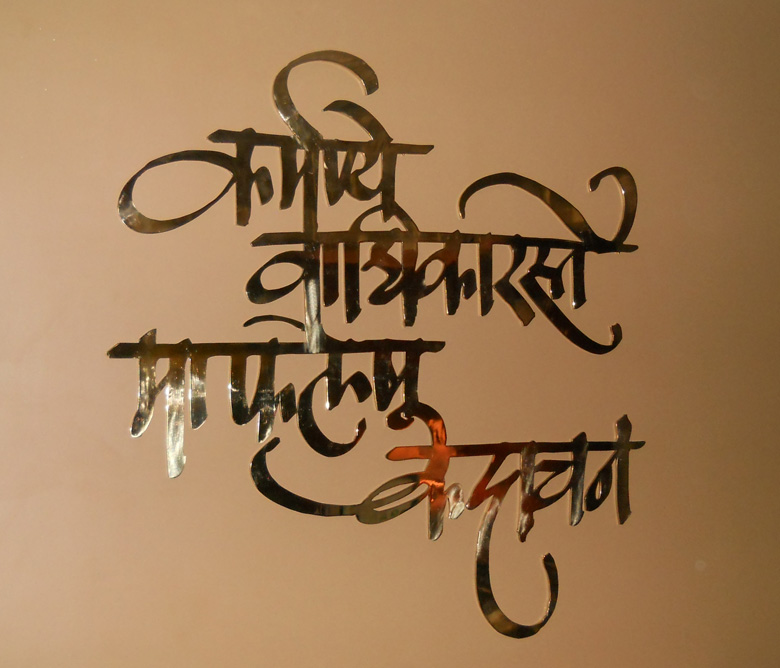 कर्मण्ये
वाधिकारस्ते
मा फलेषु
कदाचन